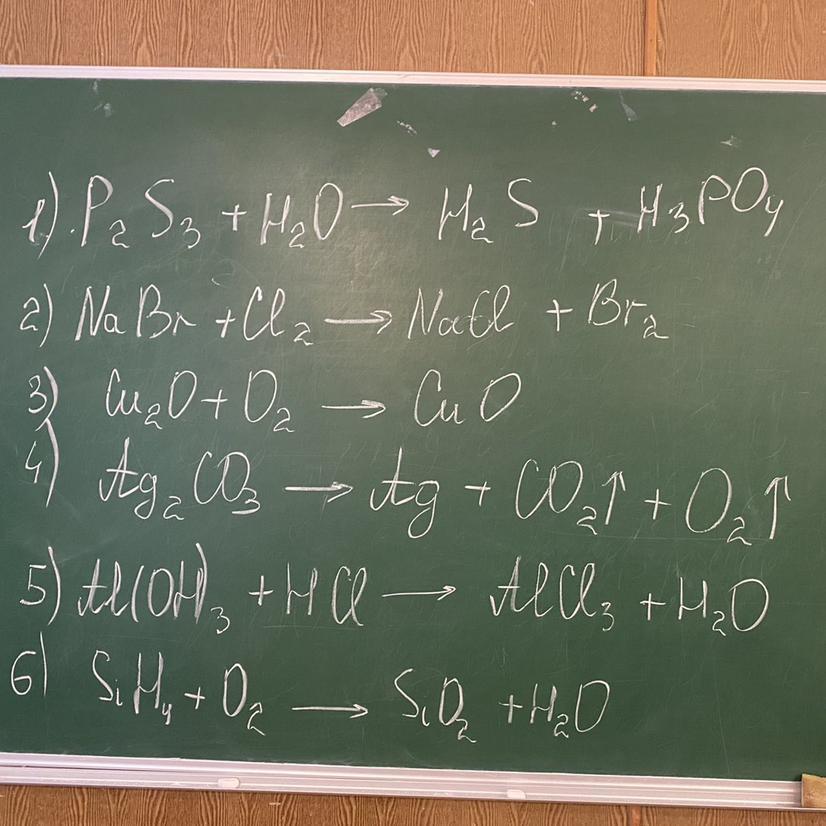 1). P₂S₃ + H₂O → H₂S + H₃PO₄
2) NaBr + Cl₂ → NaCl + Br₂
3) Cu₂O + O₂ → CuO
4) Ag₂CO₃ → Ag + CO₂↑ + O₂↑
5) Al(OH)₃ + HCl → AlCl₃ + H₂O
6) SiH₄ + O₂ → SiO₂ + H₂O